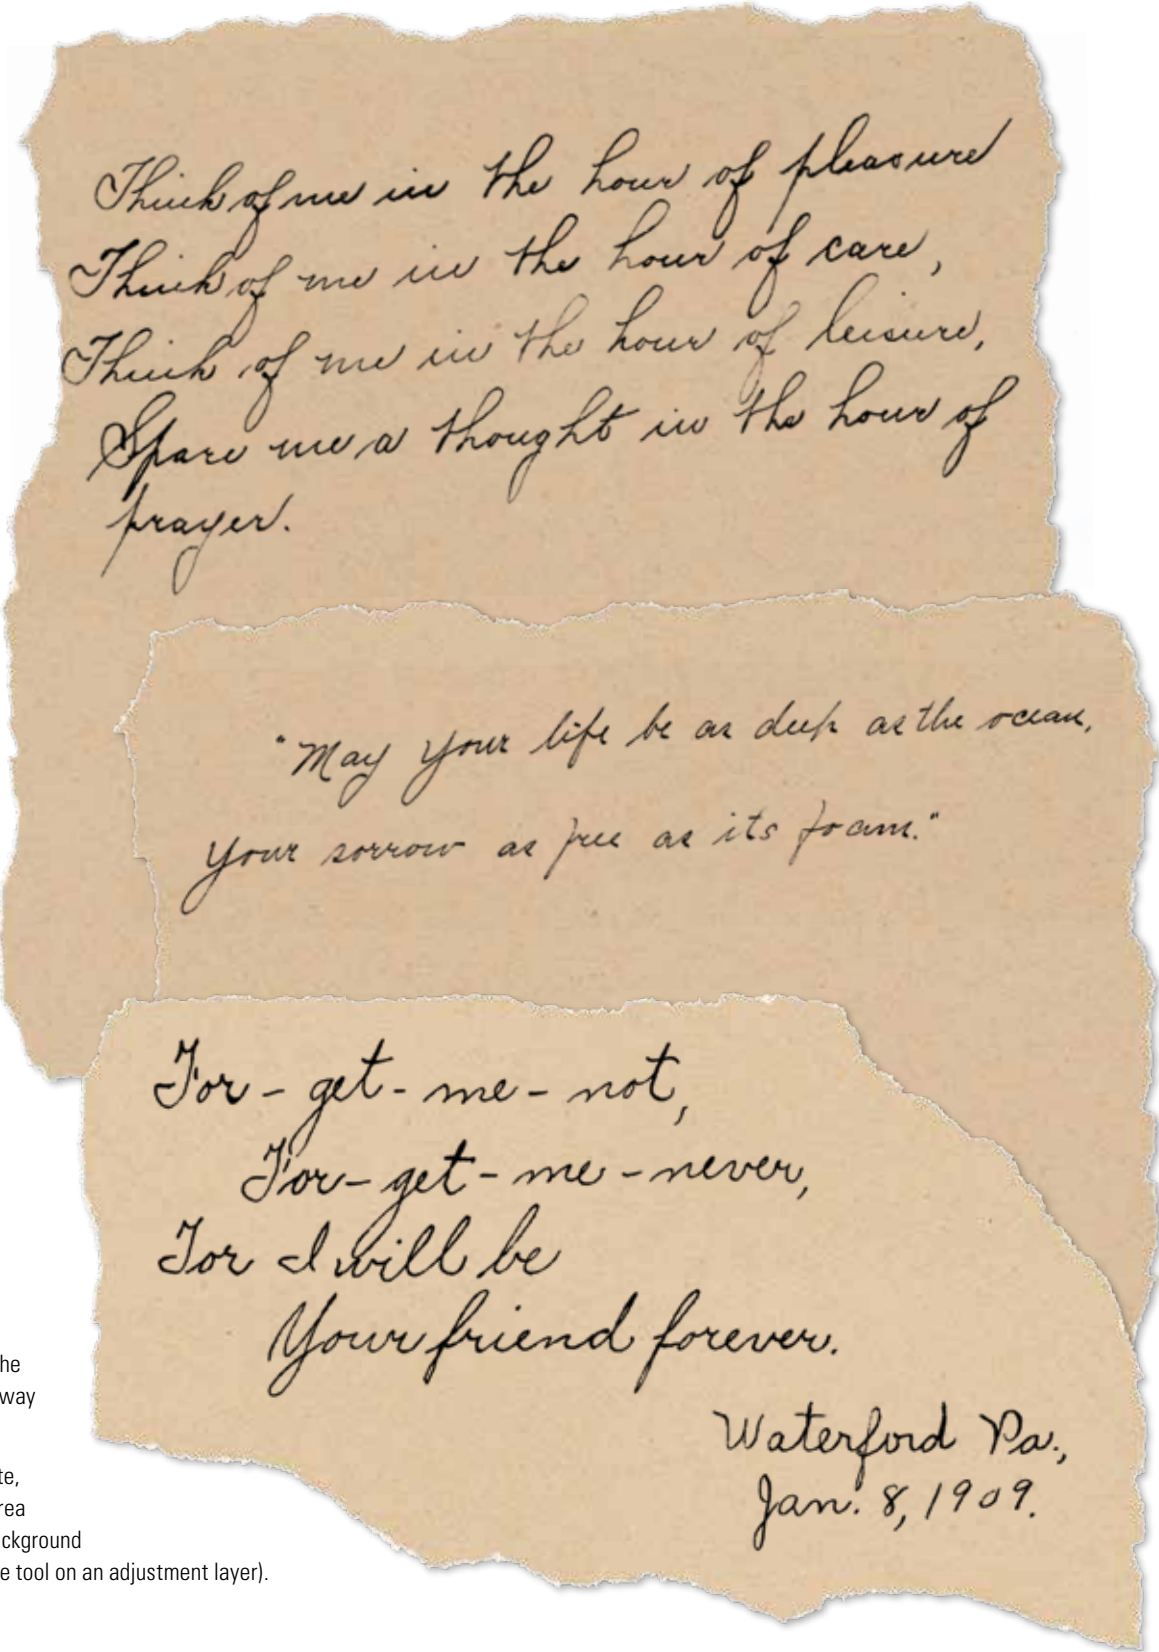 Think of me in the hour of pleasure
Think of me in the hour of care,
Think of me in the hour of leisure,
Spare me a thought in the hour of
prayer.
"May your life be as deep as the ocean,
Your sorrow as free as its foam."
For-get-me-not,
For-get-me-never,
For I will be
Your friend forever.
Waterford Pa.,
Jan. 8, 1909.
he
way
te,
rea
ckground
e tool on an adjustment layer).